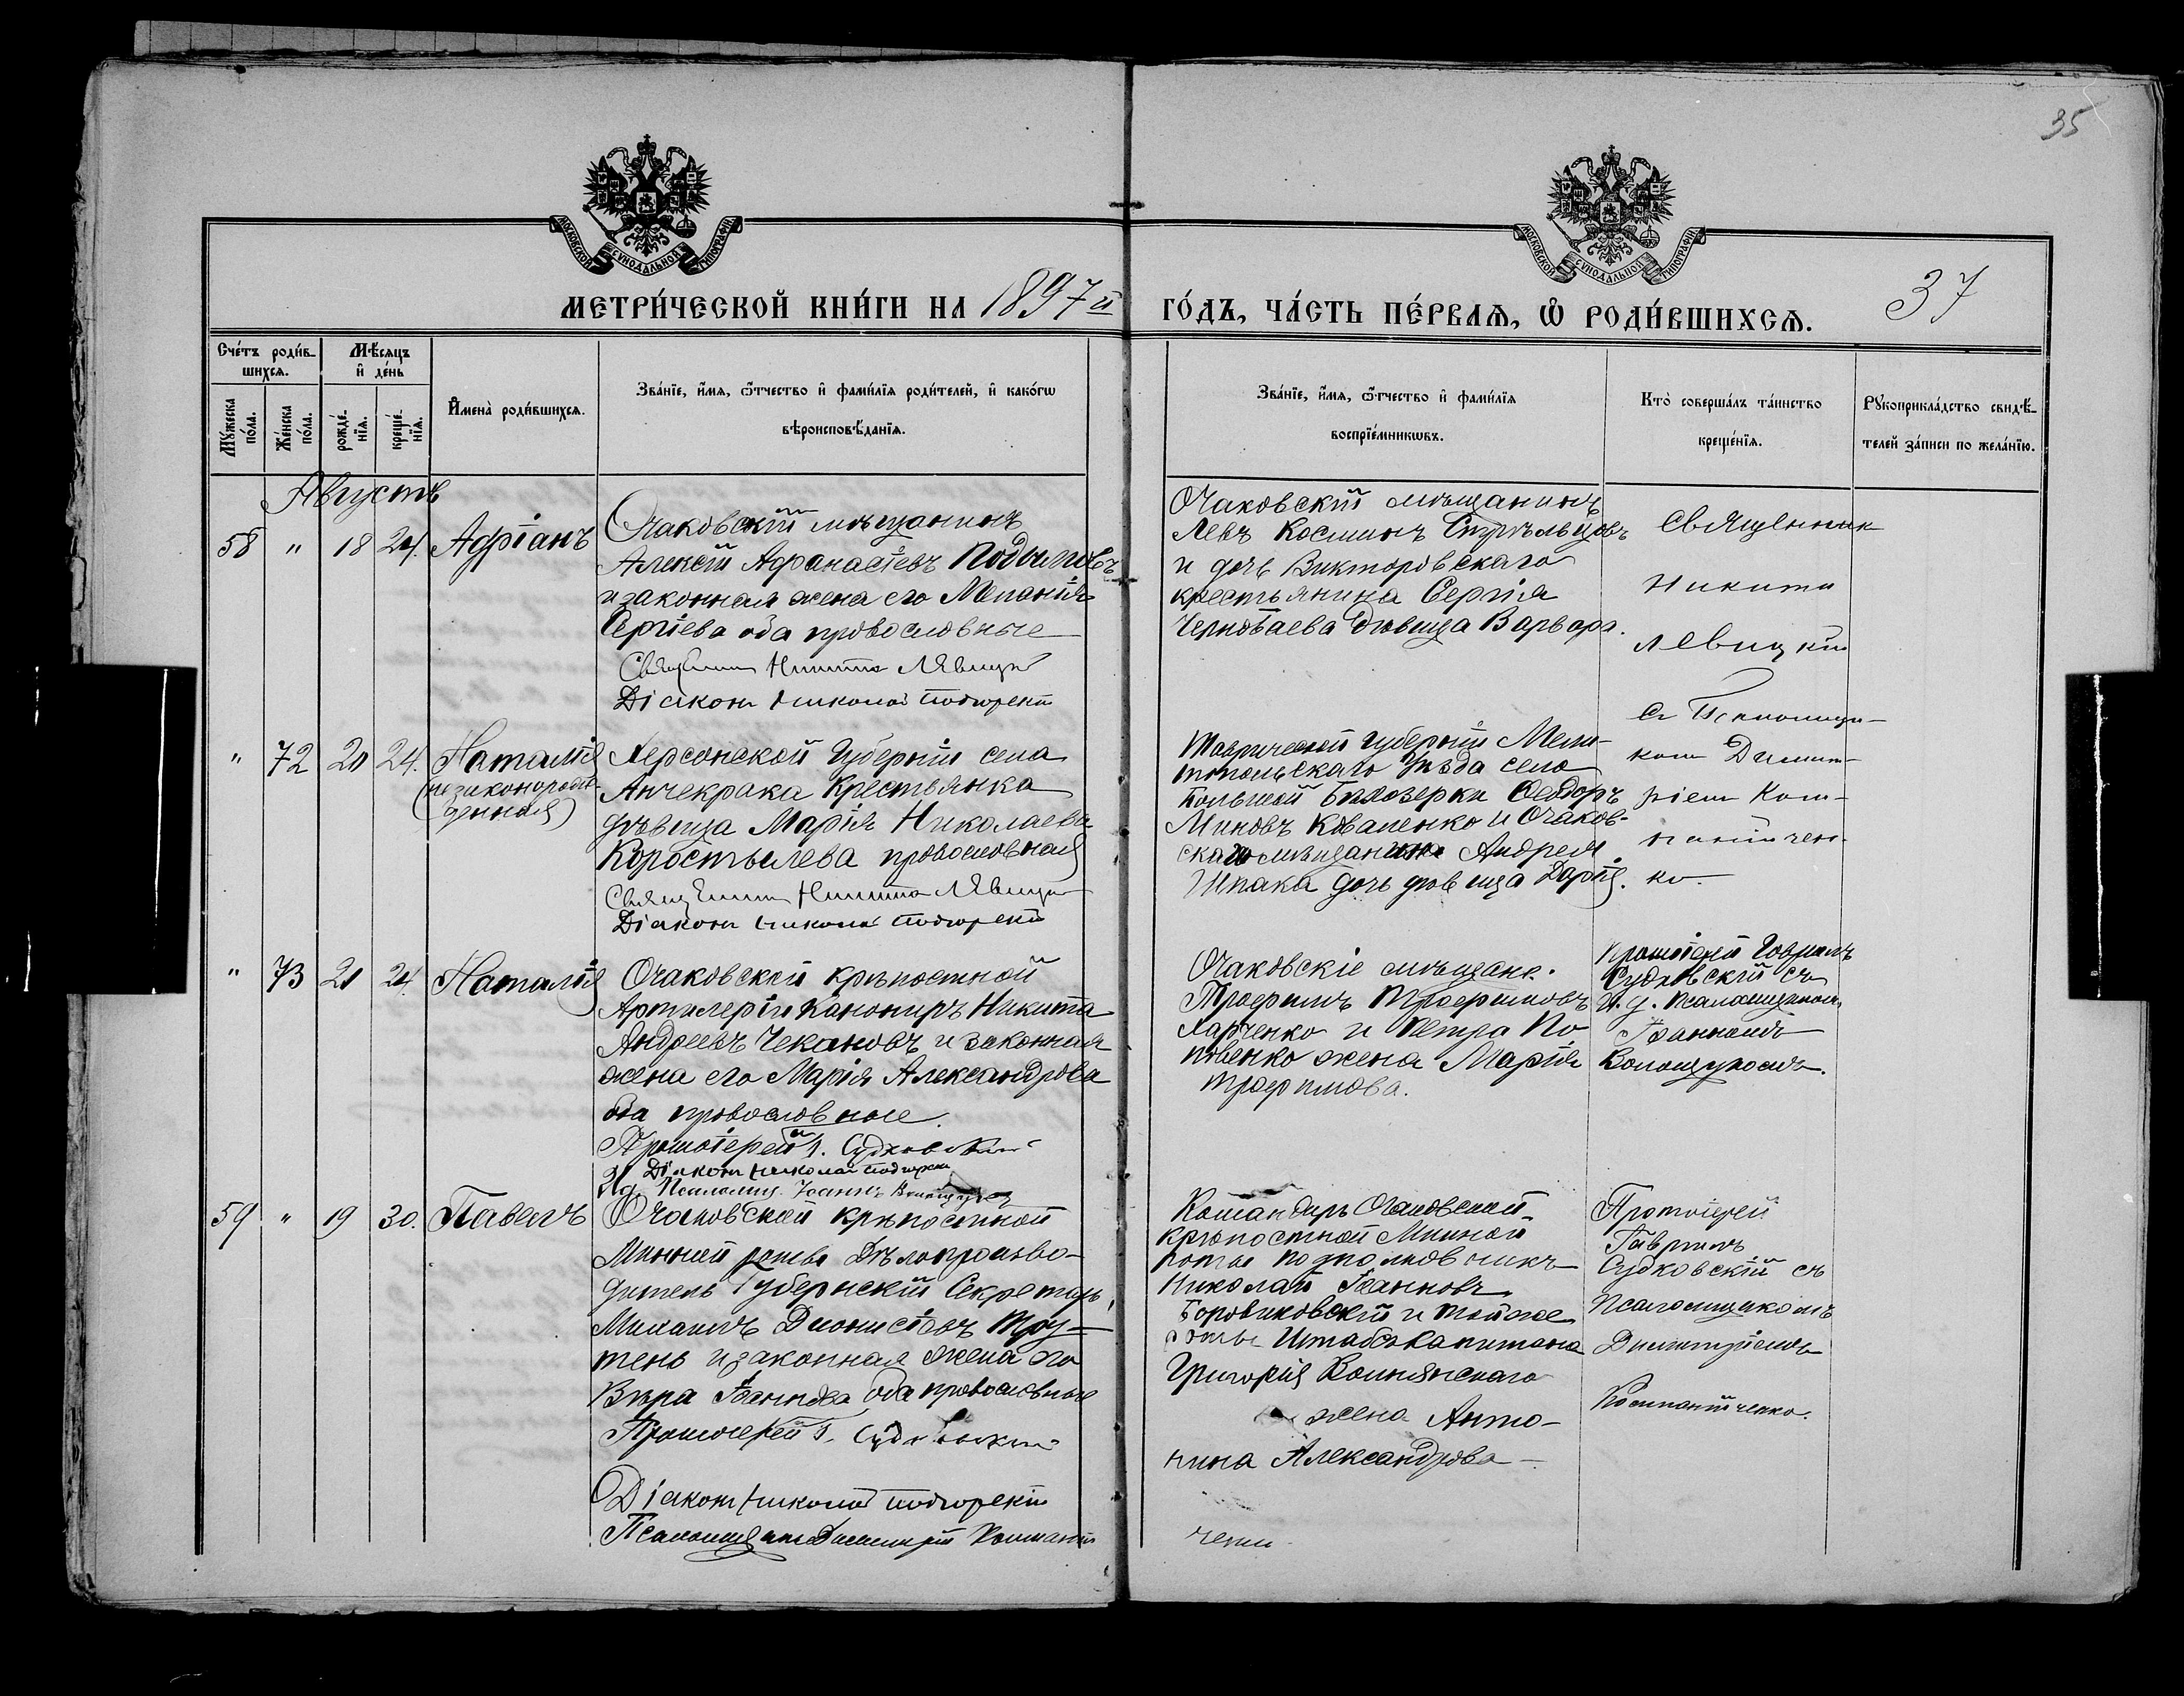 35
МОСКОВСКОЙ СѴНОДАЛЬНОЙ ТИПОГРАФІИ
МОСКОВСКОЙ СѴНОДАЛЬНОЙ ТИПОГРАФІИ
МЕТРИ́ЧЕСКОЙ КНИ́ГИ НА 1897й ГО́ДЪ, ЧА́СТЬ ПЕ́РВАѦ, Ѡ РОДИ́ВШИХСѦ. 37
Сче́тъ роди́в-
шихсѧ.
Мꙋ́жеска по́ла.
Же́нска по́ла.
Мѣ́сѧцъ
и҆ де́нь
рожде́-
нїѧ.
креще́-
нїѧ.
И҆мена̀ роди́вшихсѧ.
Зва́нїе, и҆́мѧ, ѻ҆́тчество и҆ фами́лїѧ роди́телей, и҆ како́гѡ
вѣроисповѣ́данїѧ.
Зва́нїе, и҆́мѧ, ѻ҆́тчество и҆ фами́лїѧ
воспрїе́мникѡвъ.
Кто̀ соверша́лъ та́инство
креще́нїѧ.
Рꙋкоприкла́дство свидѣ́-
телей за́писи по жела́нїю.
Августъ
58 " 18 24. Адріанъ
Очаковскій мѣщанинъ
Алексій Афанасіевъ Подымовъ
и законная жена его Меланія
Сергіева оба провославные
Священникъ Никита Лѣвицкій
Діаконъ Николай Подгорскій
Очаковскій мѣщанинъ
Левъ Косминъ Стрѣльцовъ
и дочь Викторовскаго
крестьянина Сергія
Чернобаева дѣвица Варвара.
Священник
Никита
Левицкій
съ Псаломщи-
ком Димит-
ріем Ком-
панійчен-
ко.
" 72 20 24. Наталія
(незаконорож-
денная)
Херсонской Губерніи села
Анчекрака Крестьянка
дѣвица Марія Николаева
Коростылева провославная
Священникъ Никита Лѣвицкій
Діаконъ Николай Подгорскій
Таврической Губерніи Мели-
топольскаго Уѣзда село
Большой Бѣлозерки Феодоръ
Миновъ Коваленко и Очаков-
скаго мѣщанина Андрея
Шпака дочь дѣвица Дарія.
" 73 21 24. Наталія
Очаковской крѣпостной
Артилеріи Канониръ Никита
Андреевъ Чекановъ и законная
жена его Марія Александрова
оба провославные.
Протоіерей Г. Судковскій
Діаконъ Николай Подгорскій
И д. Псаломщ. Іоаннъ Волощуков
Очаковскіе мѣщане.
Трофимъ Трофимовъ
Харченко и Петра По-
повенко жена Марія
Трофимова.
Протоіерей Гавріилъ
Судковскій съ
И. д. Псаломщиком
Іоанномъ
Волощукомъ.
59 " 19 30. Павелъ
Очаковской крѣпостной
Минной роты Дѣлопроизво-
дитель Губернскій Секретарь,
Михаилъ Діонисіевъ Тру-
тень и законная жена его
Вѣра Іоаннова оба провославные
Протоіерей Г. Судковскій
Діаконъ Николай Подгорскій
Псаломщикъ Димитрій Компаній
Командиръ Очаковской
крѣпостной Минной
роты подполковникъ
Николай Іоанновъ
Боровиковскій и тойже
роты Штабскапитана
Григорія Волинскаго
жена Анто-
нина Александрова
ченко
Протоіерей
Гавріилъ
Судковскій съ
Псаломщикомъ
Димитріемъ
Компанійченко.